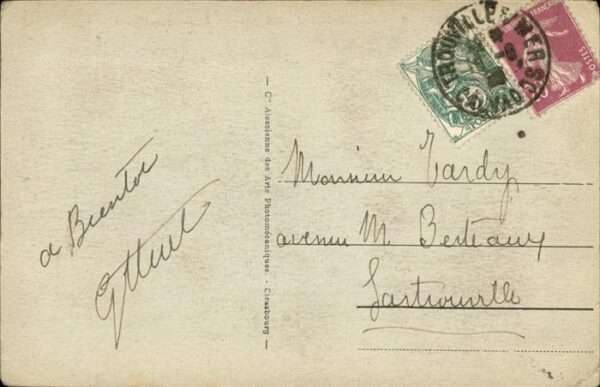 a Bientot
Cie Alsacienne des Arts Photomécaniques. - Strasbourg
TROUVILLE S/MER
CALVADOS
POSTES
Monsieur Tardy
avenue M Berteaux
Sartrouville